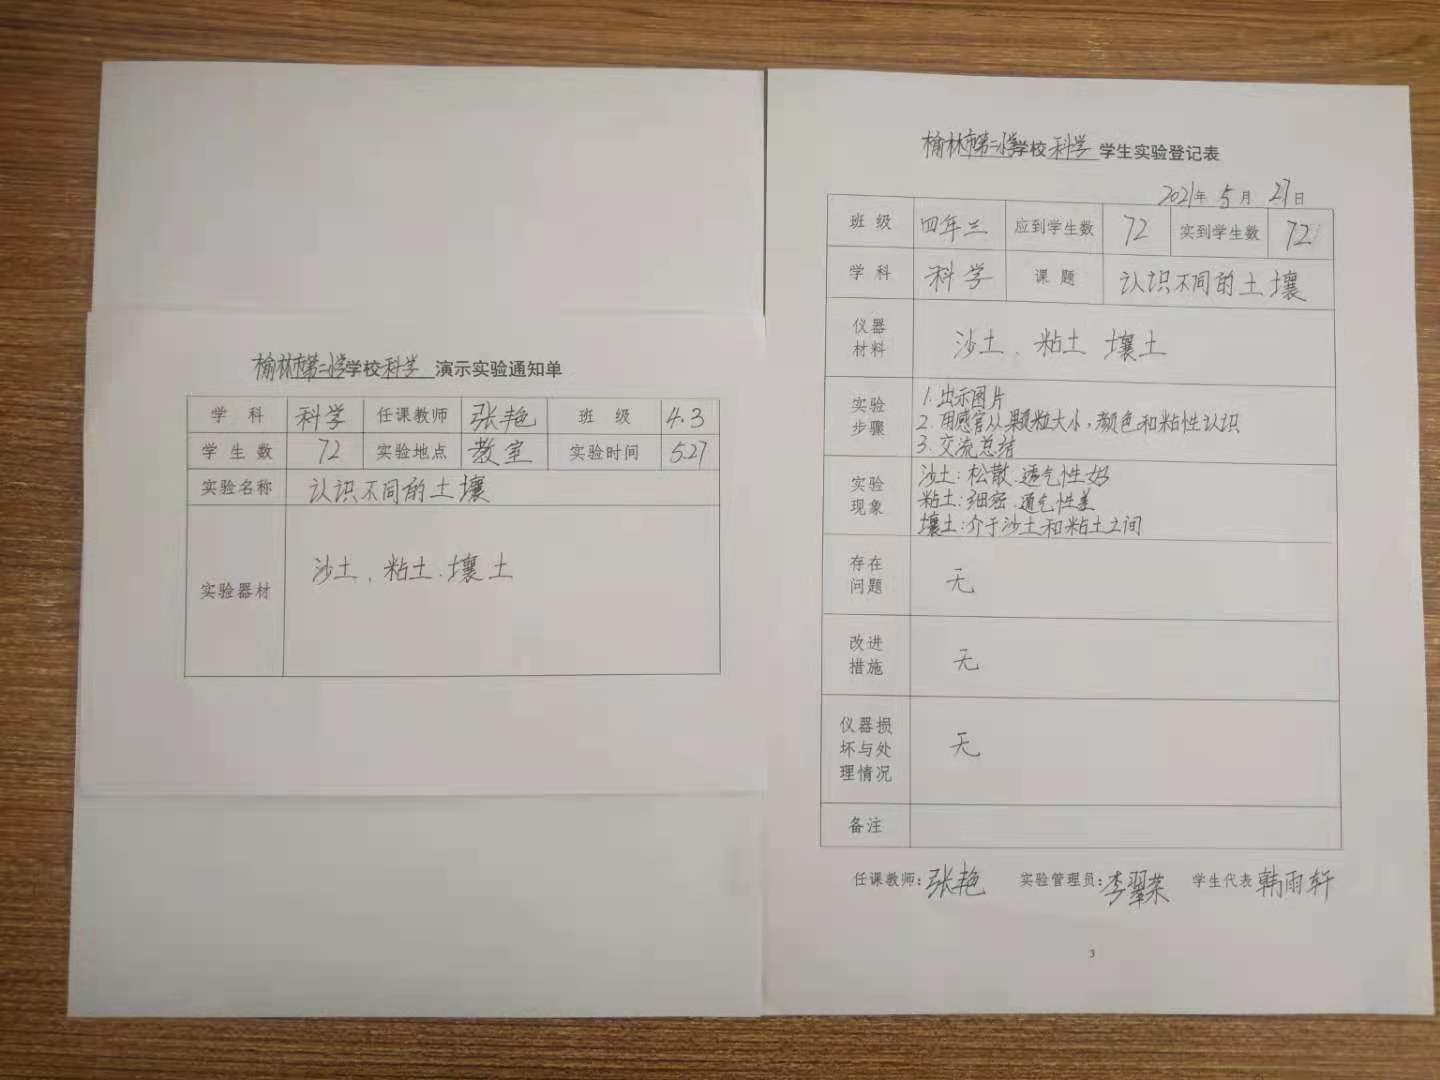 榆林市第二小学学校科学 演示实验通知单
学 科 科学 任课教师 张艳 班 级 4.3
学 生 数 72 实验地点 教室 实验时间 5.27
实验名称 认识不同的土壤
实验器材 沙土、粘土、壤土
榆林市第二小学学校科学 学生实验登记表
2021年 5月 27日
班 级 四年三 应到学生数 72 实到学生数 72
学 科 科学 课 题 认识不同的土壤
仪器
材料
沙土、粘土 壤土
实验
步骤
1. 出示图片
2. 用感官从颗粒大小、颜色和粘性认识
3. 交流总结
实验
现象
沙土:松散.透气性好
粘土:细密.通气性差
壤土:介于沙土和粘土之间
存在
问题
无
改进
措施
无
仪器损
坏与处
理情况
无
备注
任课教师:张艳 实验管理员:李翠荣 学生代表 韩雨轩
3